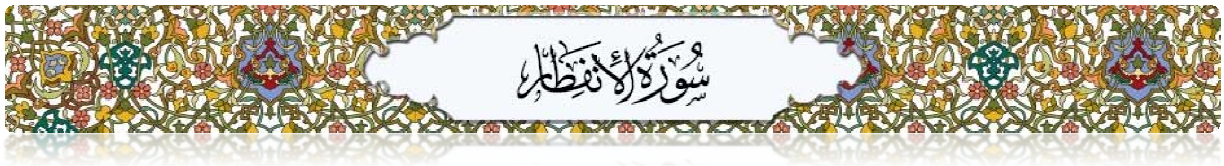 سُورَةُ الْإِنْفِطَارِ